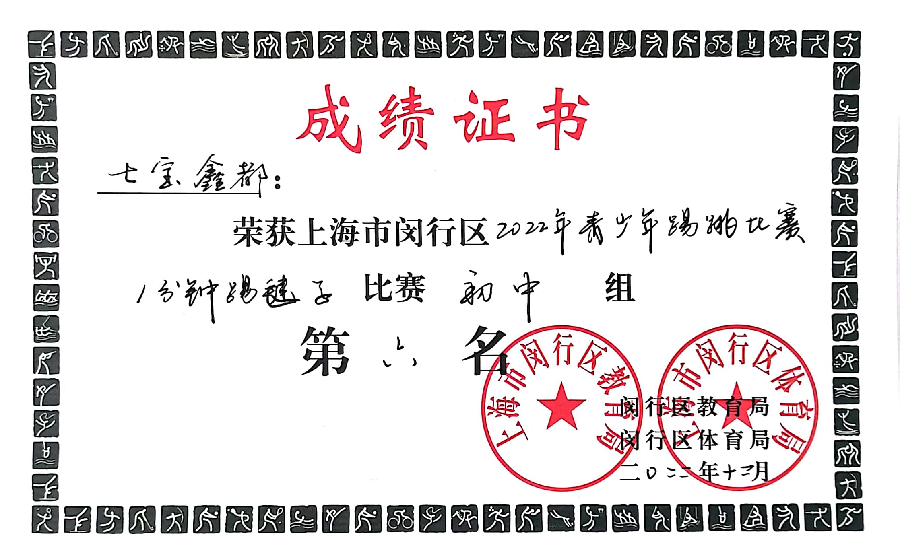 成绩证书
七宝鑫都：
荣获上海市闵行区2022年青少年踢跳比赛
1分钟踢毽子比赛初中组
第六名
上海市闵行区教育局
上海市闵行区体育局
闵行区教育局
闵行区体育局
二〇二二年十二月